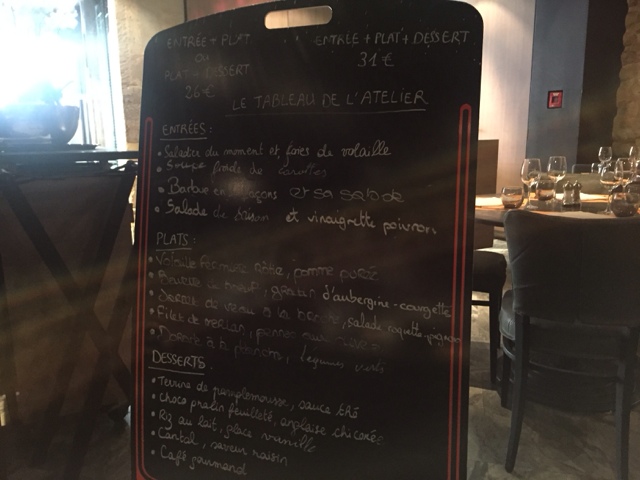 ENTRÉE + PLAT
ou
PLAT + DESSERT
26 €
ENTRÉE + PLAT + DESSERT
31 €
LE TABLEAU DE L'ATELIER
ENTRÉES :
• du moment et foies de volaille
• Soupe froide de carottes
• Barbue en et sa salade
• Salade de saison et vinaigrette poivron
PLATS :
• Volaille rôtie, pomme purée
• de boeuf, gratin d'aubergine-courgette
• de veau à la, salade roquette-pignon
• Filet de merlan,
• Dorade à la plancha, légumes verts
DESSERTS :
• Terrine de pamplemousse, sauce thé
• Choco pralin feuilleté, anglaise chicorée
• Riz au lait, glace vanille
• Cantal, saveur raisin
• Café gourmand